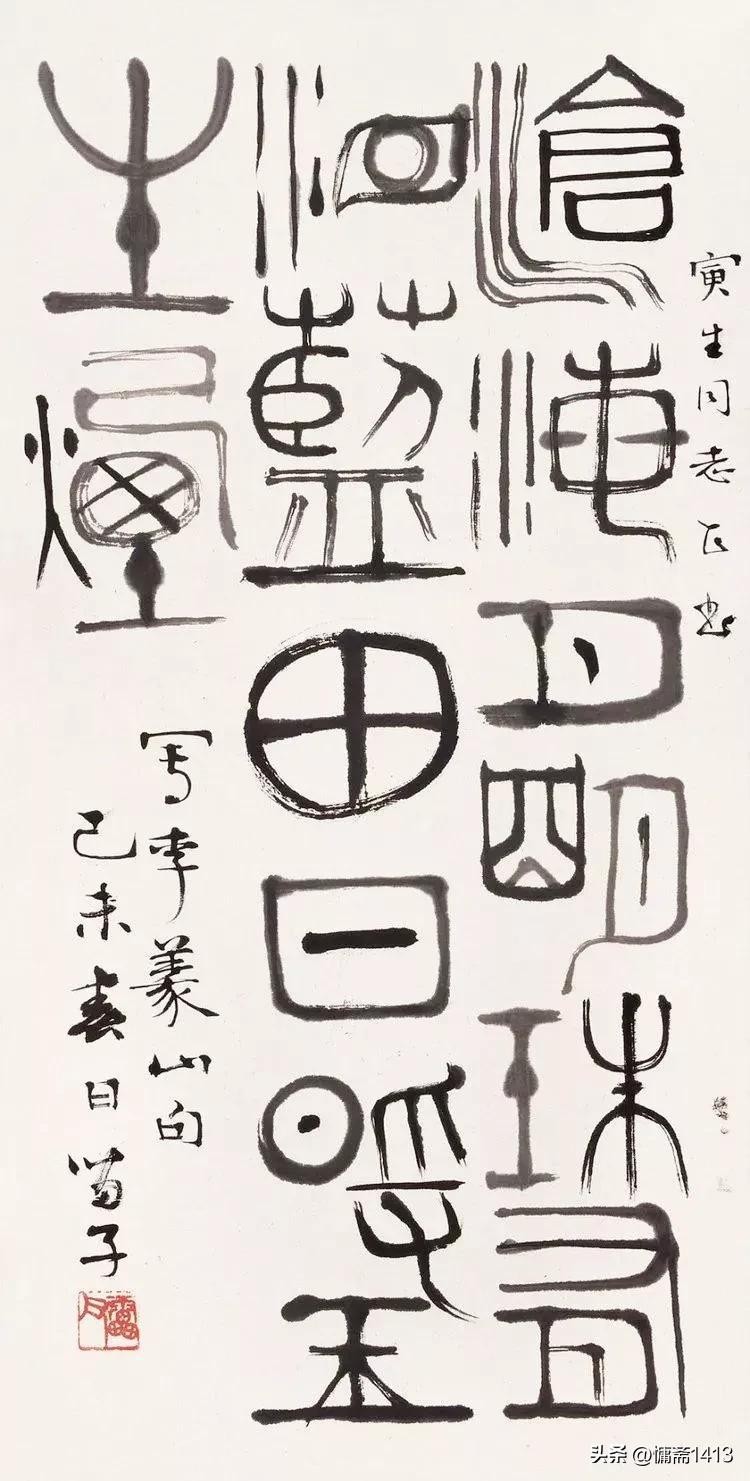 寅生同志正书
滄海月明珠有
泪藍田日暖玉
生煙
写李義山句
己未春日苗子
头条 @慵斋1413